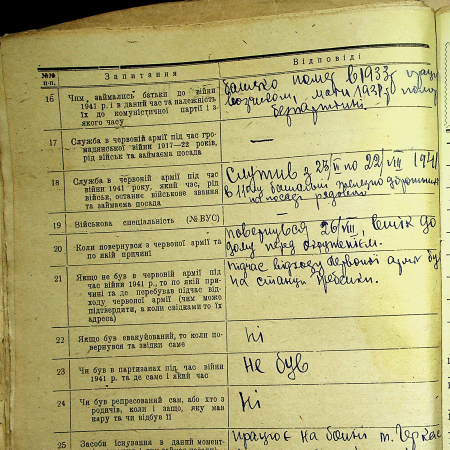 №№ п.п.
Запитання
Відповіді
16
Чим займались батьки до війни
1941 р. і в даний час та належність
їх до комуністичної партії і з
якого часу
батько помер в 1933 р.
мати 1937 р.
безпартійні
17
Служба в червоній армії під час гро-
мадянської війни 1917—22 років,
рід військ та займаєма посада
—
18
Служба в червоній армії під час
війни 1941 року, який час, рід
військ, останнє військове звання
та займаєма посада
Служив з 23/ по 22/VIII 1941
в батальоні
на посаді рядового
19
Військова спеціальність (№ ВУС)
—
20
Коли повернувся з червоної армії та
по якій причині
повернувся 26/VIII, втік до
дому перед оточенням.
21
Якщо не був в червоній армії під
час війни 1941 р., то по якій при-
чині та де перебував підчас від-
ходу червоної армії (чим може
підтвердити, а коли свідками то їх
адреса)
підчас відходу червоної армії був
на станції
22
Якщо був евакуйований, то коли по-
вернувся та звідки саме
Ні
23
Чи був в партизанах під час війни
1941 р. та де саме і який час
Не був
24
Чи був репресований сам, або хто з
родичів, коли і защо, яку мав
кару та чи відбув її
Ні
25
Засоби існування в даний момент
працює на м. Черкас